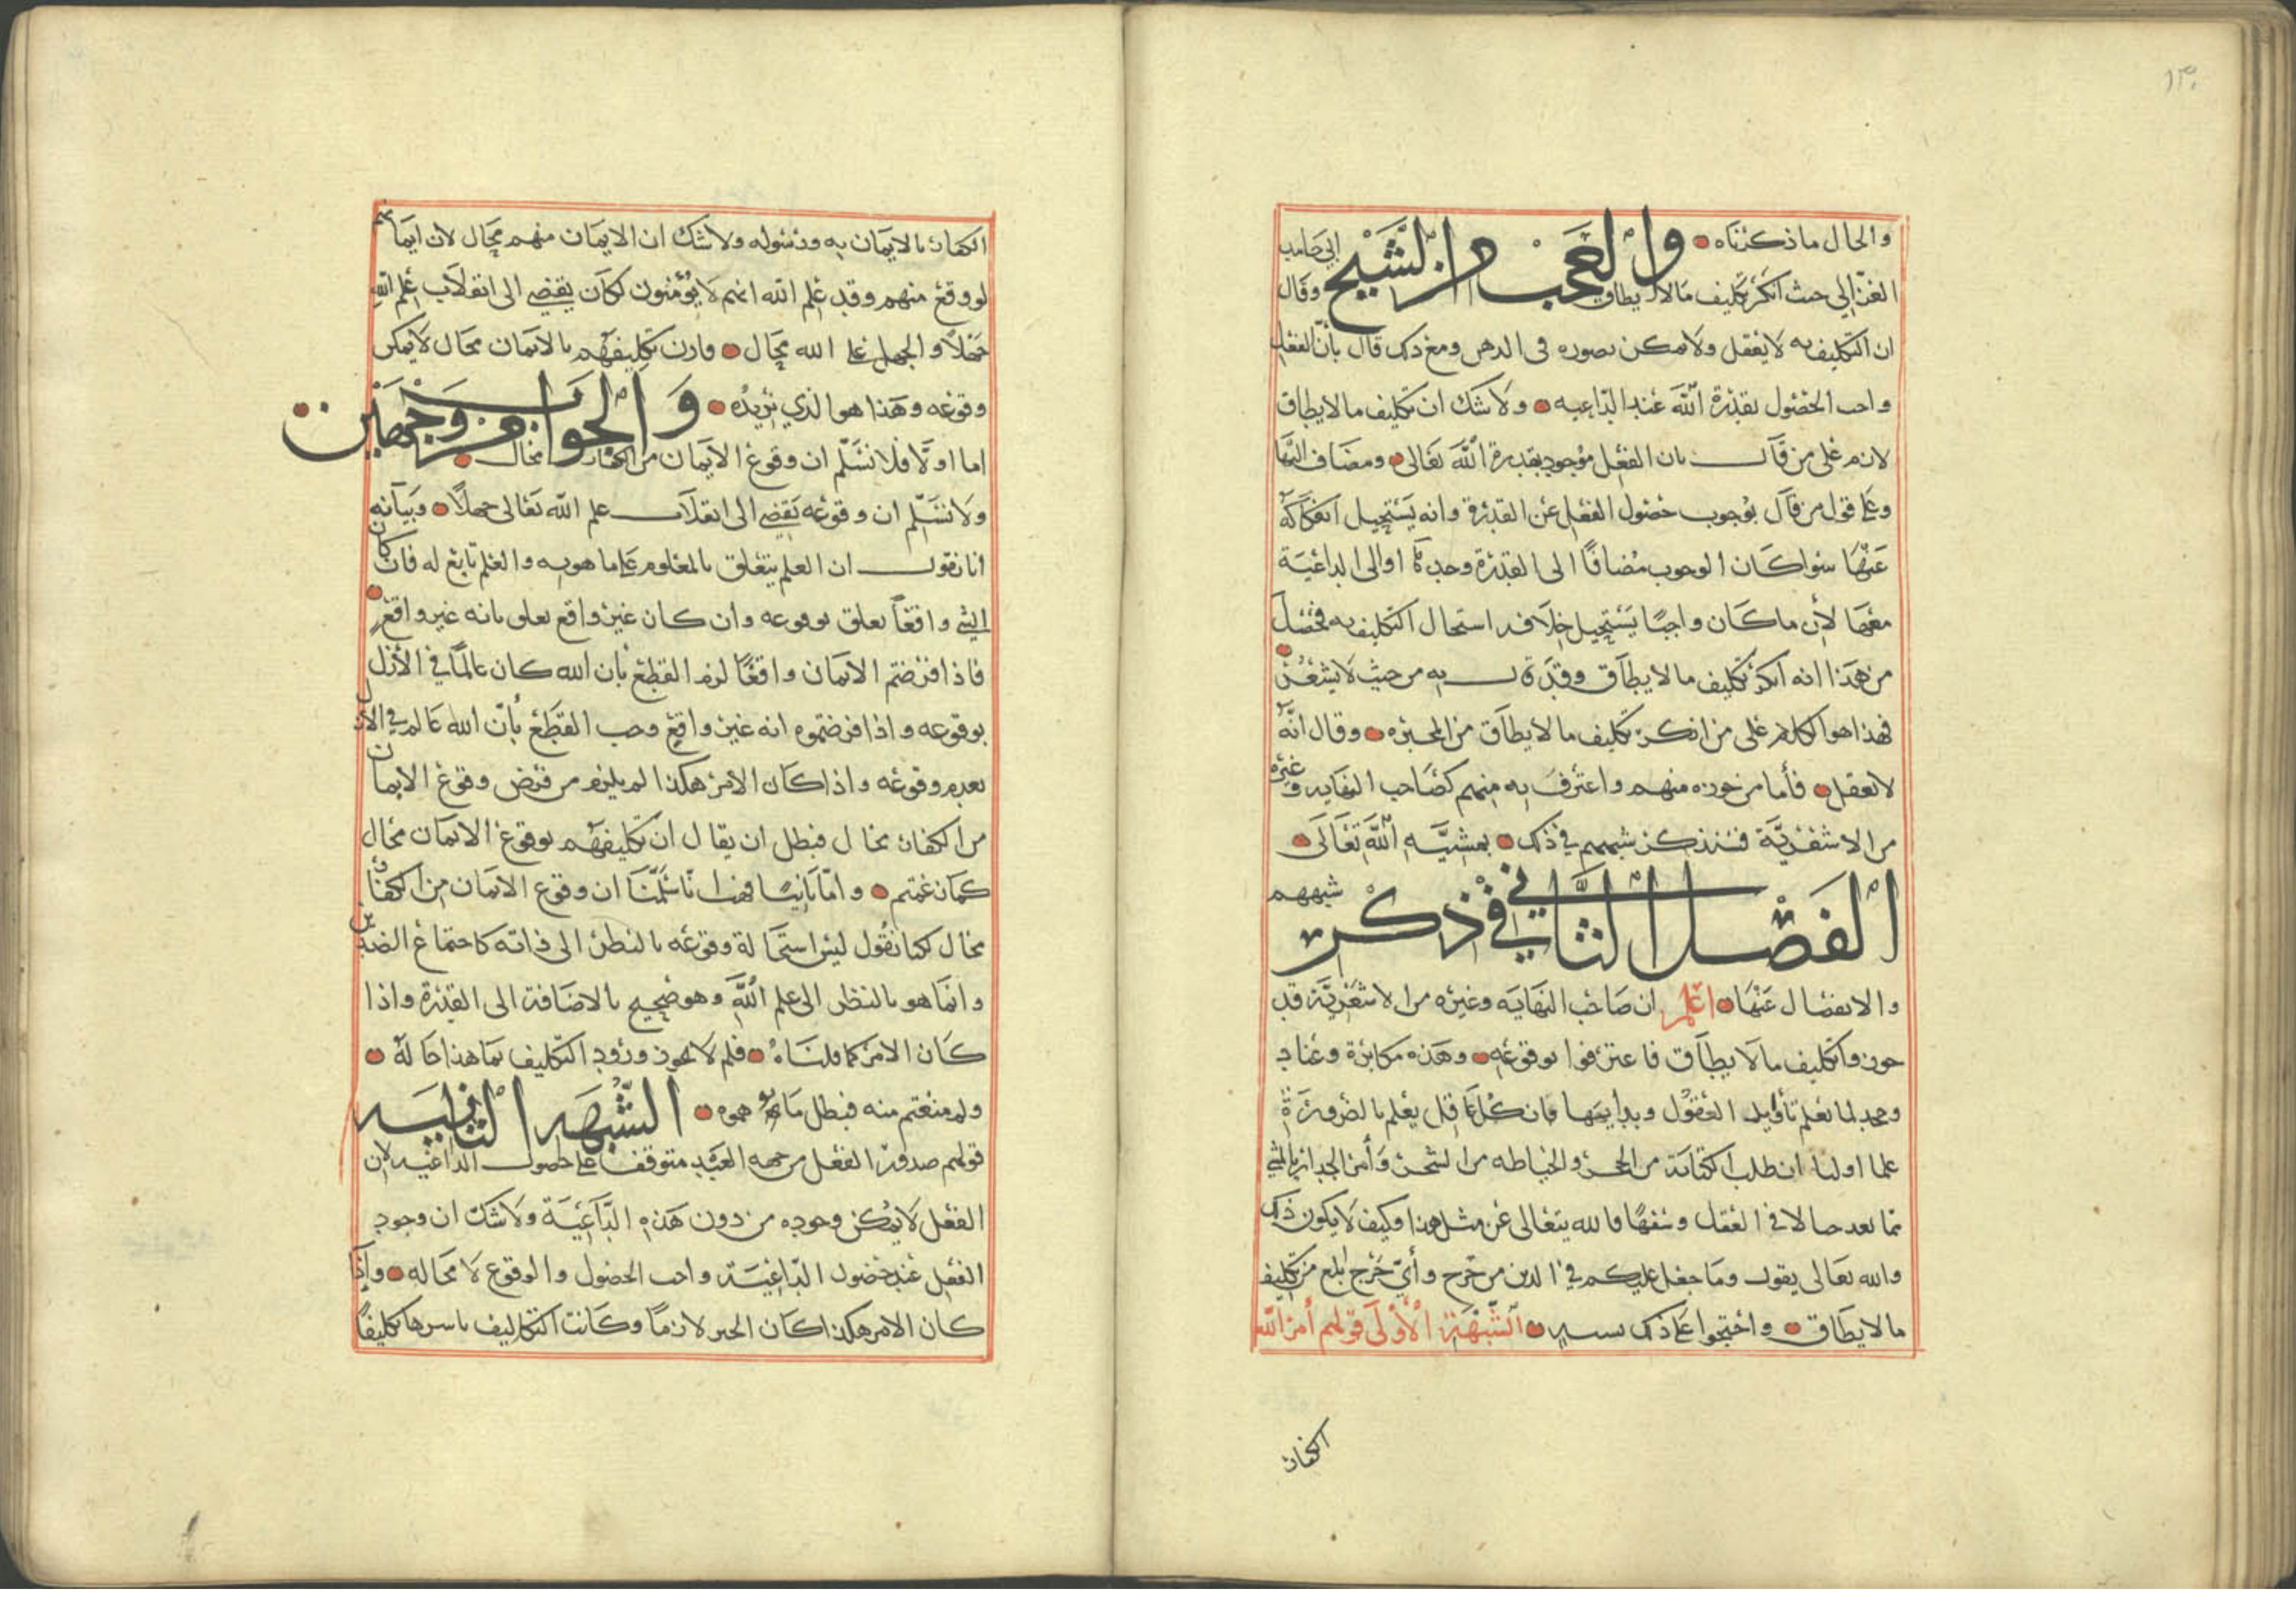 ١٣٠
والحال ما ذكرناه والعجب من الشيخ ابي حامد
الغزالي حيث انكر تكليف ما لا يطاق وقال
ان التكليف به لا يعقل ولا يمكن تصوره في الذهن ومع ذلك قال بأن الفعل
واجب الحصول بقدرة الله عند الداعيه ولا شك ان تكليف ما لا يطاق
لازم على من قال بان الفعل موجود بقدرة الله تعالى ومضاف اليها
وعلى قول من قال بوجوب حصول الفعل عن القدرة وانه يستحيل انفكاكه
عنها سوا كان الوجوب مضافًا الى القدرة وحدها او الى الداعية
معها لأن ما كان واجبًا يستحيل خلافه استحال التكليف به فحصل
من هذا انه انكر تكليف ما لا يطاق وقد قال به من حيث لا يشعر
فهذا هو الكلام على من انكر تكليف ما لا يطاق من المجبره وقال انه
لا يعقل فأما من جوزه منهم واعترف به منهم كصاحب النهايه وغيره
من الاشعرية فنذكر شبههم في ذلك بمشية الله تعالى
الفصل الثاني في ذكر شبههم
والانفصال عنها اعلم ان صاحب النهايه وغيره من الاشعرية قد
جوزوا تكليف ما لا يطاق فاعترفوا بوقوعه وهذه مكابرة وعناد
وجحد لما تعلم العقول وبدايهها فان كل عاقل يعلم بالضرورة
علما اوليا ان طلب الكتابة من الحجر والخياطه من الشجر وأمر الجدار بالمشي
مما يعد في العقل وسفهًا فالله يتعالى عن مثل هذا وكيف لا يكون ذلك
والله تعالى يقول وما جعل عليكم في الدين من حرج وأي حرج ابلغ من تكليف
ما لا يطاق واحتجوا على ذلك بشبه الشبهة الأولى قولهم أمر الله
الكفار
الكفار بالايمان به ورسوله ولا شك ان الايمان منهم محال لان ايمانهم
لو وقع منهم وقد علم الله انهم لا يؤمنون لكان يفضي الى انقلاب علم الله
جهلًا والجهل على الله محال فاذن تكليفهم بالايمان محال لا يمكن
وقوعه وهذا هو الذي نريده والجواب من وجهين
اما اولًا فلا نسلم ان وقوع الايمان من الكفار محال
ولا نسلم ان وقوعه يفضي الى انقلاب علم الله تعالى جهلًا وبيانه
انا نقول ان العلم يتعلق بالمعلوم على ما هو به والعلم تابع له فان كان
الشي واقعًا تعلق بوقوعه وان كان غير واقع تعلق بانه غير واقع
فاذا فرضتم الايمان واقعًا لزم القطع بأن الله كان عالمًا في الأزل
بوقوعه واذا فرضتموه انه غير واقع وجب القطع بأن الله عالم في الازل
بعدم وقوعه واذا كان الامر هكذا لم يلزم من فرض وقوع الايمان
من الكفار محال فبطل ان يقال ان تكليفهم بوقوع الايمان محال
كما زعمتم واما ثانيًا فهب انا سلمنا ان وقوع الايمان من الكفار
محال لكنا نقول ليس استحالة وقوعه بالنظر الى ذاته كاجتماع الضدين
وانما هو بالنظر الى علم الله وهو صحيح بالاضافة الى القدرة واذا
كان الامر كما قلناه فلم لا يجوز ورود التكليف بما هذا حاله
ولم منعتم منه فبطل ما توهموه الشبهة الثانية
قولهم صدور الفعل من جهة العبد متوقف على حصول الداعية لان
الفعل لا يمكن وجوده من دون هذه الداعية ولا شك ان وجود
الفعل عند حصول الداعية واجب الحصول والوقوع لا محاله واذا
كان الامر هكذا كان الجبر لازمًا وكانت التكاليف باسرها تكليفًا